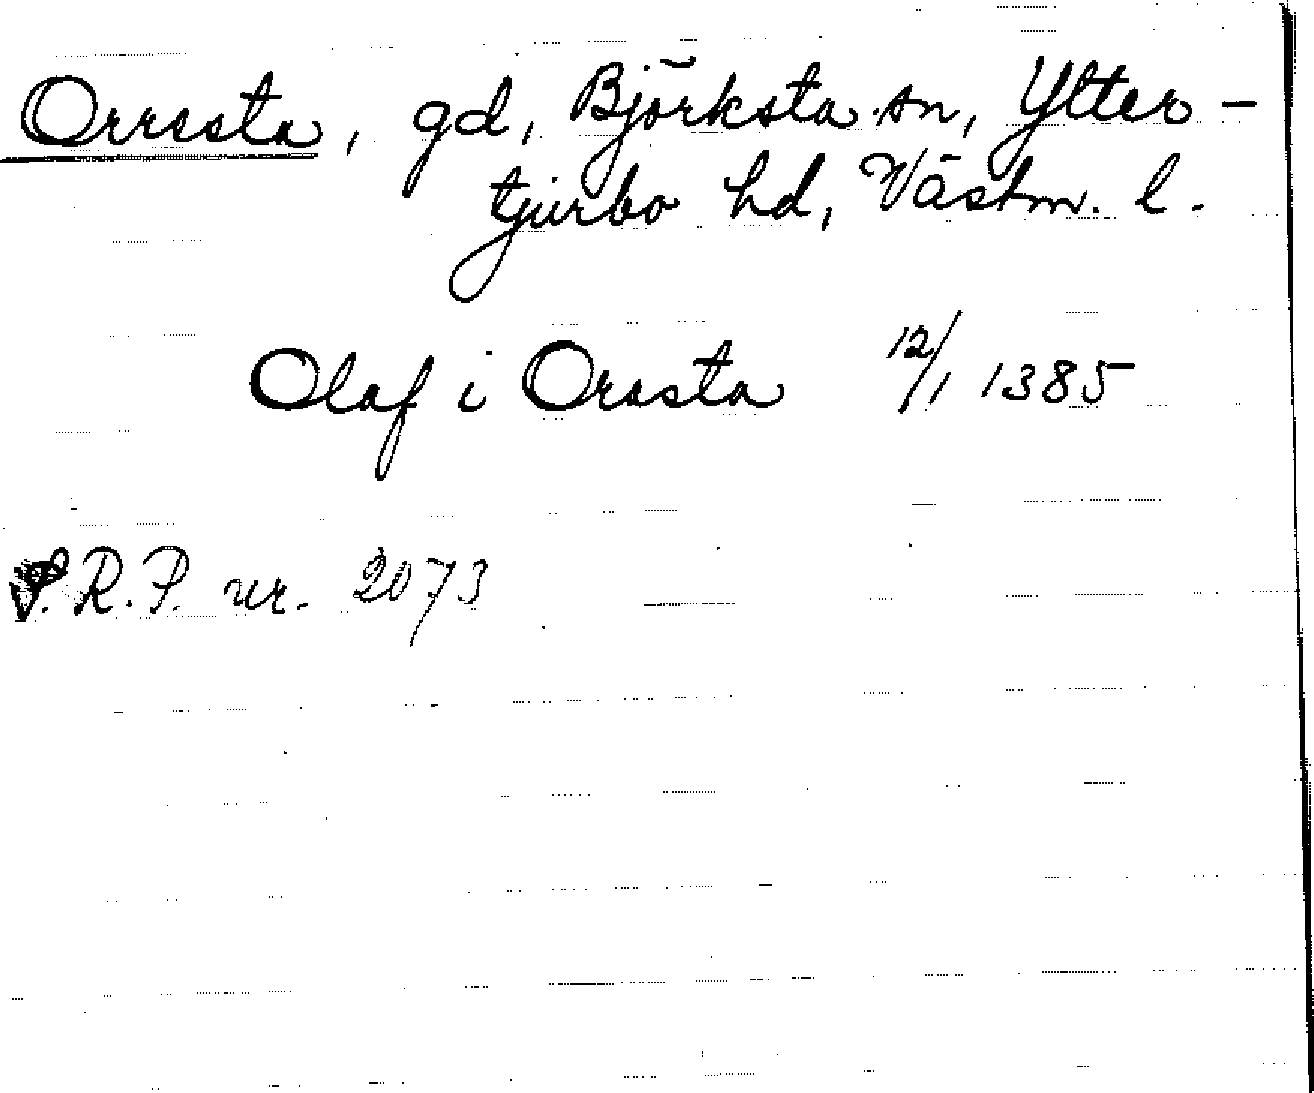 Orresta, gd, Björksta sn, Ytter-
tjurbo hd, Västm. l.
Olaf i Orasta 12/1 1385
S.R.P. nr. 2073